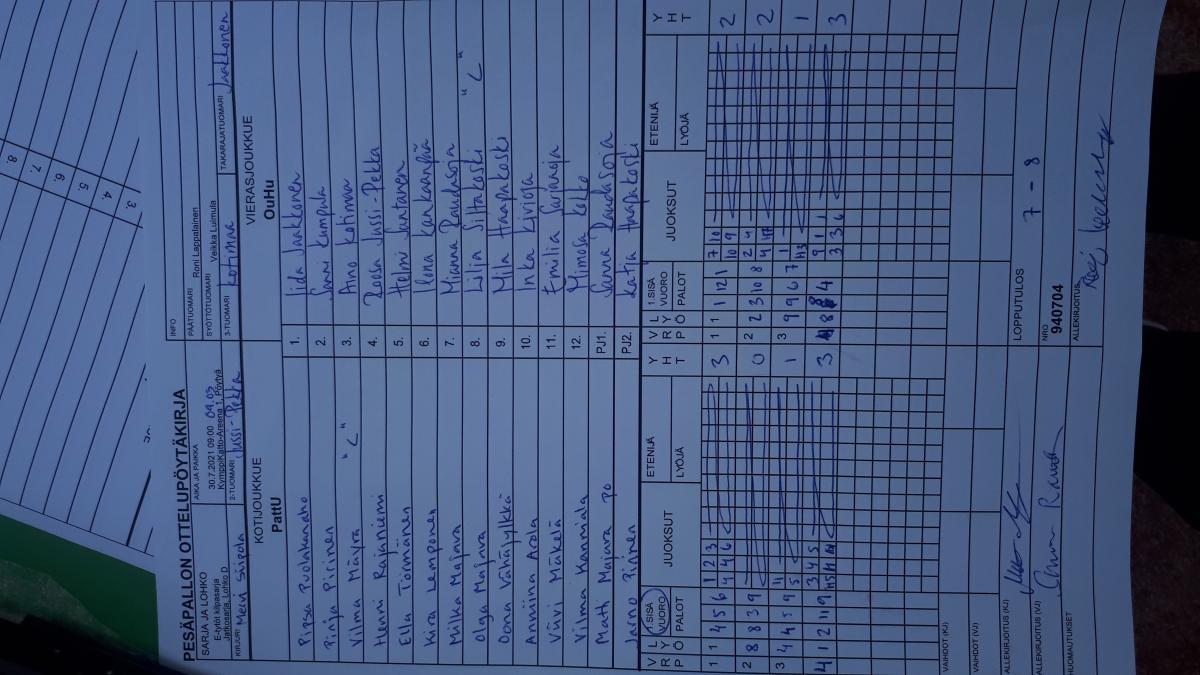 PESÄPALLON OTTELUPÖYTÄKIRJA
SARJA JA LOHKO
E-tytöt kilpasarja
Jatkosarja, Lohko D
AIKA JA PAIKKA
30.7.2021 09:00 09.03
KymppiKatto-Areena 1, Pöytyä
INFO
PÄÄTUOMARI Roni Lappalainen
SYÖTTÖTUOMARI Veikka Luimula
KIRJURI Mervi Siipola
2-TUOMARI Jussi-Pekka
3-TUOMARI Kotimaa
TAKARAJATUOMARI Jaakkonen
KOTIJOUKKUE
PattU
VIERASJOUKKUE
OuHu
Pipsa Puolakanaho 1. Iida Jaakkonen
Pinja Pirinen 2. Sanni Kumpula
Vilma Mäyrä "C" 3. Aino Kotimaa
Henni Rajaniemi 4. Roosa Jussi-Pekka
Ella Törmänen 5. Helmi Santanen
Kira Lemponen 6. Ilona Kankaanpää
Milka Majava 7. Mianna Raudasoja
Olga Majava 8. Lilia Siltakoski "C"
Oona Vähäjylkkä 9. Mila Haapakoski
Anniina Arola 10. Inka Kivioja
Väivi Mäkelä 11. Emilia Sarjanoja
Vilma Kannala 12. Mimosa Kokko
Matti Majava PO PJ1. Sanna Raudasoja
Jarno Pirinen PJ2. Katja Haapakoski
V R P L Y Ö 1.SISÄ VUORO PALOT JUOKSUT ETENIJÄ LYÖJÄ Y H T
V R P L Y Ö 1.SISÄ VUORO PALOT JUOKSUT ETENIJÄ LYÖJÄ Y H T
1 1 4 5 6 1 2 3 3 1 1 1 12 1 7 10 2
4 4 6 10 9
2 8 8 3 9 0 2 2 3 10 8 2 4 2
3 4 4 5 9 11 1 3 9 9 6 7 1 1
5
4 1 2 11 9 3 4 5 3 8 4 9 1 1 3
3 3 6
VAIHDOT (KJ)
VAIHDOT (VJ)
LOPPUTULOS 7 - 8
ALLEKIRJOITUS (KJ)
NRO
940704
ALLEKIRJOITUS (VJ)
ALLEKIRJOITUS
HUOMAUTUKSET
3.
4.
5.
6.
7.
8.